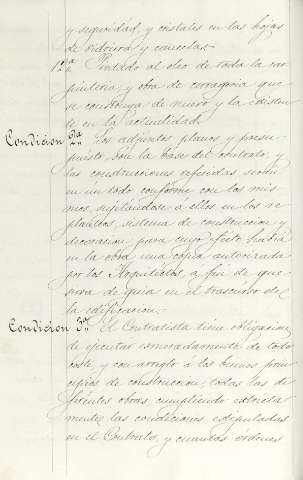 y seguridad, y cristales en las hojas
de vidriera y cancelas.
12ª Pintado al oleo de toda la car
pinteria, y obra de cerragería que
se construya de nuevo y la existen
te en la actualidad.
Condicion 2ª Los adjuntos planos y presu-
puesto, son la base del contrato, y
las construcciones referidas serán
en un todo conforme con los mis
mos, sujetándose a ellos en los re
planteos, sistema de construccion y
decoracion para cuyo efecto habrá
en la obra una copia autorizada
por los Arquitectos a fin de que
sirva de guia en el trascurso de
la edificacion.
Condicion 3ª El Contratista tiene obligacion
de ejecutar esmeradamente de todo
coste, y con arreglo a los buenos prin
cipios de construccion, todas las di
ferentes obras cumpliendo estricta
mente las condiciones estipuladas
en el Contrato, y cuantas órdenes